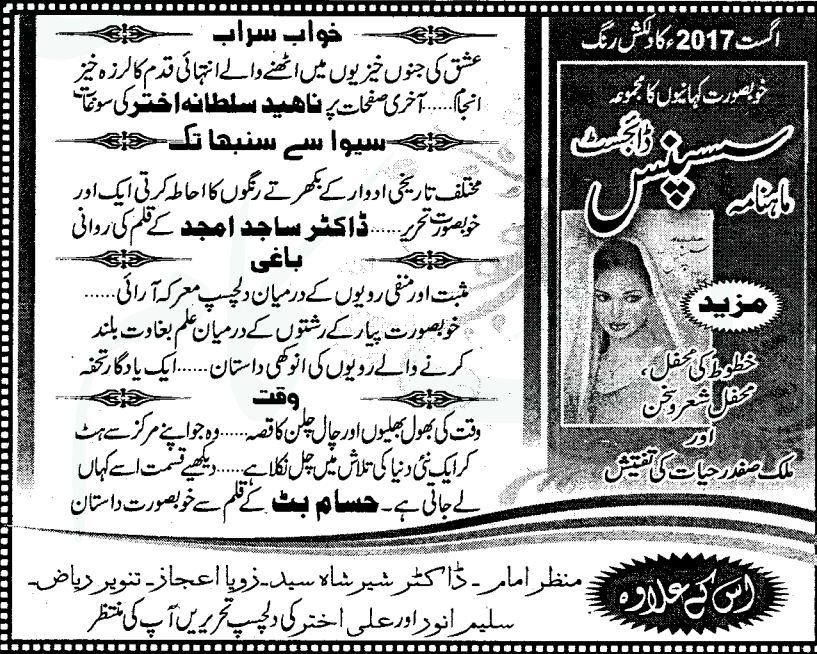 اگست 2017ء کا دلکش رنگ
خوبصورت کہانیوں کا مجموعہ
سسپنس ڈائجسٹ
ماہنامہ
مزید
خطوط کی محفل،
محفل شعر و سخن
اور
ملک صفدر حیات کی تفتیش
خواب سراب
عشق کی جنوں خیزیوں میں اٹھنے والے انتہائی قدم کا لرزہ خیز
انجام ..... آخری صفحات پر ناھید سلطانه اختر کی سوغات
سیوا سے سنبھا تک
مختلف تاریخی ادوار کے بکھرتے رنگوں کا احاطہ کرتی ایک اور
خوبصورت تحریر ..... ڈاکٹر ساجد امجد کے قلم کی روانی
باغی
مثبت اور منفی رویوں کے درمیان دلچسپ معرکہ آرائی ......
خوبصورت پیار کے رشتوں کے درمیان علم بغاوت بلند
کرنے والے رویوں کی انوکھی داستان ...... ایک یادگار تحفہ
وقت
وقت کی بھول بھلیوں اور چال چلن کا قصہ ..... وہ جو اپنے مرکز سے ہٹ
کر ایک نئی دنیا کی تلاش میں چل نکلا ہے ..... دیکھیے قسمت اسے کہاں
لے جاتی ہے۔ حسام بٹ کے قلم سے خوبصورت داستان
اس کے علاوہ
منظر امام۔ ڈاکٹر شیر شاہ سید۔ زویا اعجاز۔ تنویر ریاض۔
سلیم انور اور علی اختر کی دلچسپ تحریریں آپ کی منتظر